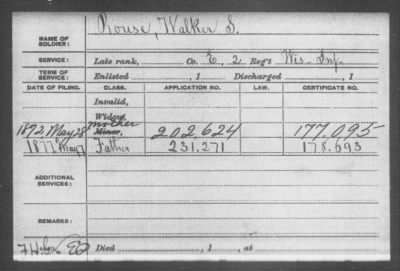 NAME OF SOLDIER: Rouse, Walker S.
SERVICE: Late rank, Co. E, 2 Reg't Wis. Inf.
TERM OF SERVICE: Enlisted , 1 Discharged , 1
DATE OF FILING. CLASS. APPLICATION NO. LAW. CERTIFICATE NO.
Invalid,
Widow,
1872 May 28 Mother Minor, 202,624 177.095
1877 May Father 231,271 178,693
ADDITIONAL SERVICES:
REMARKS:
Died , 1 , at